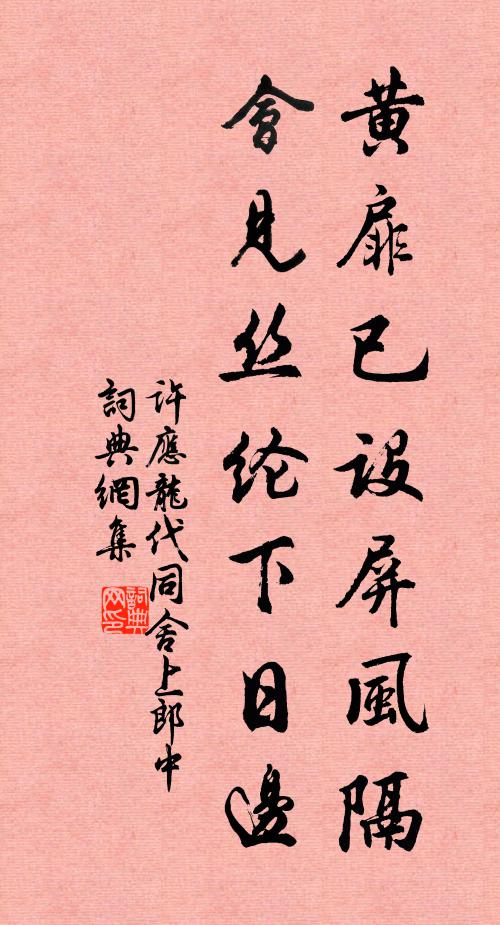 黄扉已设屏風隔
會見丝纶下日邊
許應龍代同舍上郎中
詞典網集
詞典网印